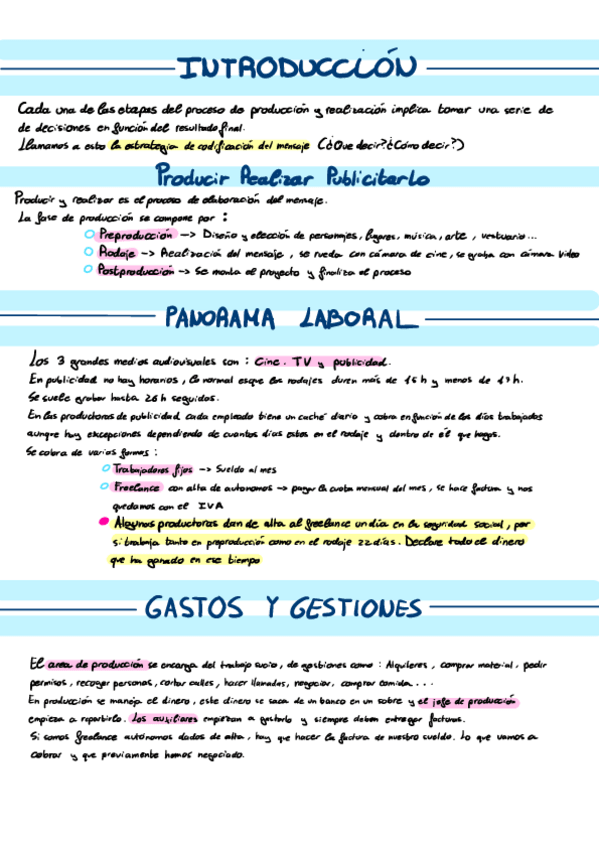 INTRODUCCIÓN
Cada una de las etapas del proceso de producción y realización implica tomar una serie de
de decisiones en función del resultado final.
Llamamos a esto la estrategia de codificación del mensaje (¿Que decir? ¿Cómo decir?)
Producir Realizar Publicitarlo
Producir y realizar es el proceso de elaboración del mensaje.
La fase de producción se compone por :
Preproducción -> Diseño y elección de personajes, lugares, música, arte , vestuario...
Rodaje -> Realización del mensaje , se rueda con cámara de cine, se graba con cámara video
Postproducción -> Se monta el proyecto y finaliza el proceso
PANORAMA LABORAL
Los 3 grandes medios audiovisuales son : Cine. TV y publicidad.
En publicidad no hay horarios, lo normal es que los rodajes duren más de 16h y menos de 17h.
Se suele grabar hasta 26h seguidas.
En las productoras de publicidad cada empleado tiene un caché diario y cobra en función de los días trabajados
aunque hay excepciones dependiendo de cuantos días estes en el rodaje y dentro de él que hagas.
Se cobra de varias formas :
Trabajadores fijos -> Sueldo al mes
Freelance con alta de autonomos -> pagar la cuota mensual del mes, se hace factura y nos
quedamos con el IVA
Algunas productoras dan de alta al freelance un día en la seguridad social, por
si trabaja tanto en preproducción como en el rodaje 22 días. Declare todo el dinero
que ha ganado en ese tiempo
GASTOS Y GESTIONES
El area de producción se encarga del trabajo sucio, de gestiones como : Alquileres , comprar material, pedir
permisos, recoger personas, cortar calles, hacer llamadas, negociar, comprar comida...
En producción se maneja el dinero, este dinero se saca de un banco en un sobre y el jefe de producción
empieza a repartirlo. Los auxiliares empiezan a gastarlo y siempre deben entregar facturas.
Si somos freelance autónomos dados de alta, hay que hacer la factura de nuestro sueldo. Lo que vamos a
cobrar y que previamente hemos negociado.